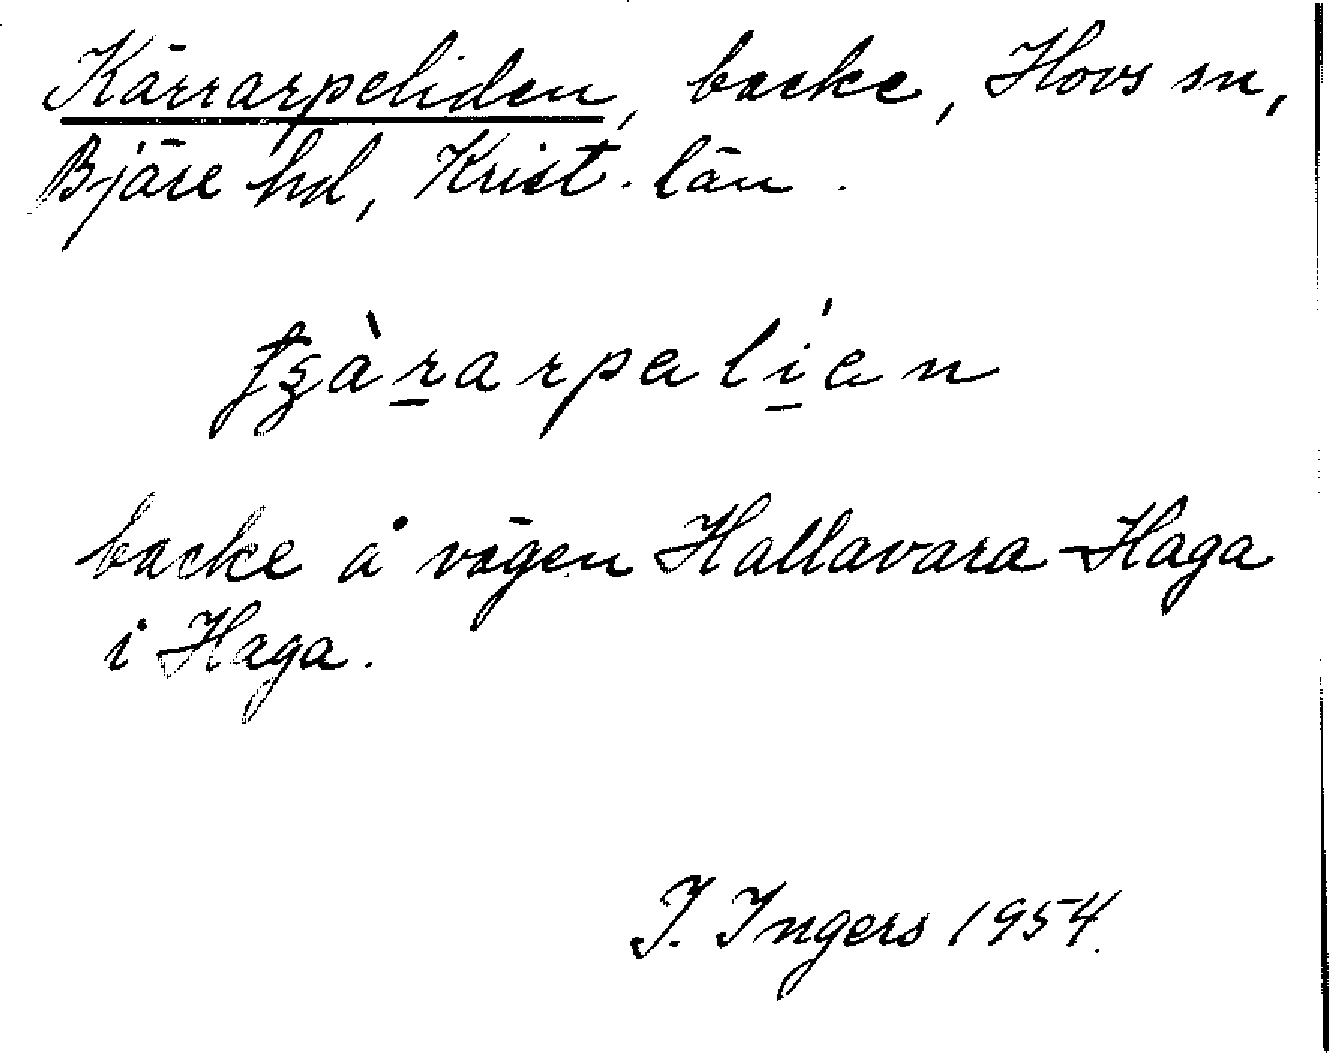 Kärrarpeliden, backe, Hovs sn,
Bjäre hd, Krist. län.
backe å vägen Hallavara-Haga
i Haga.
I. Ingers 1954.